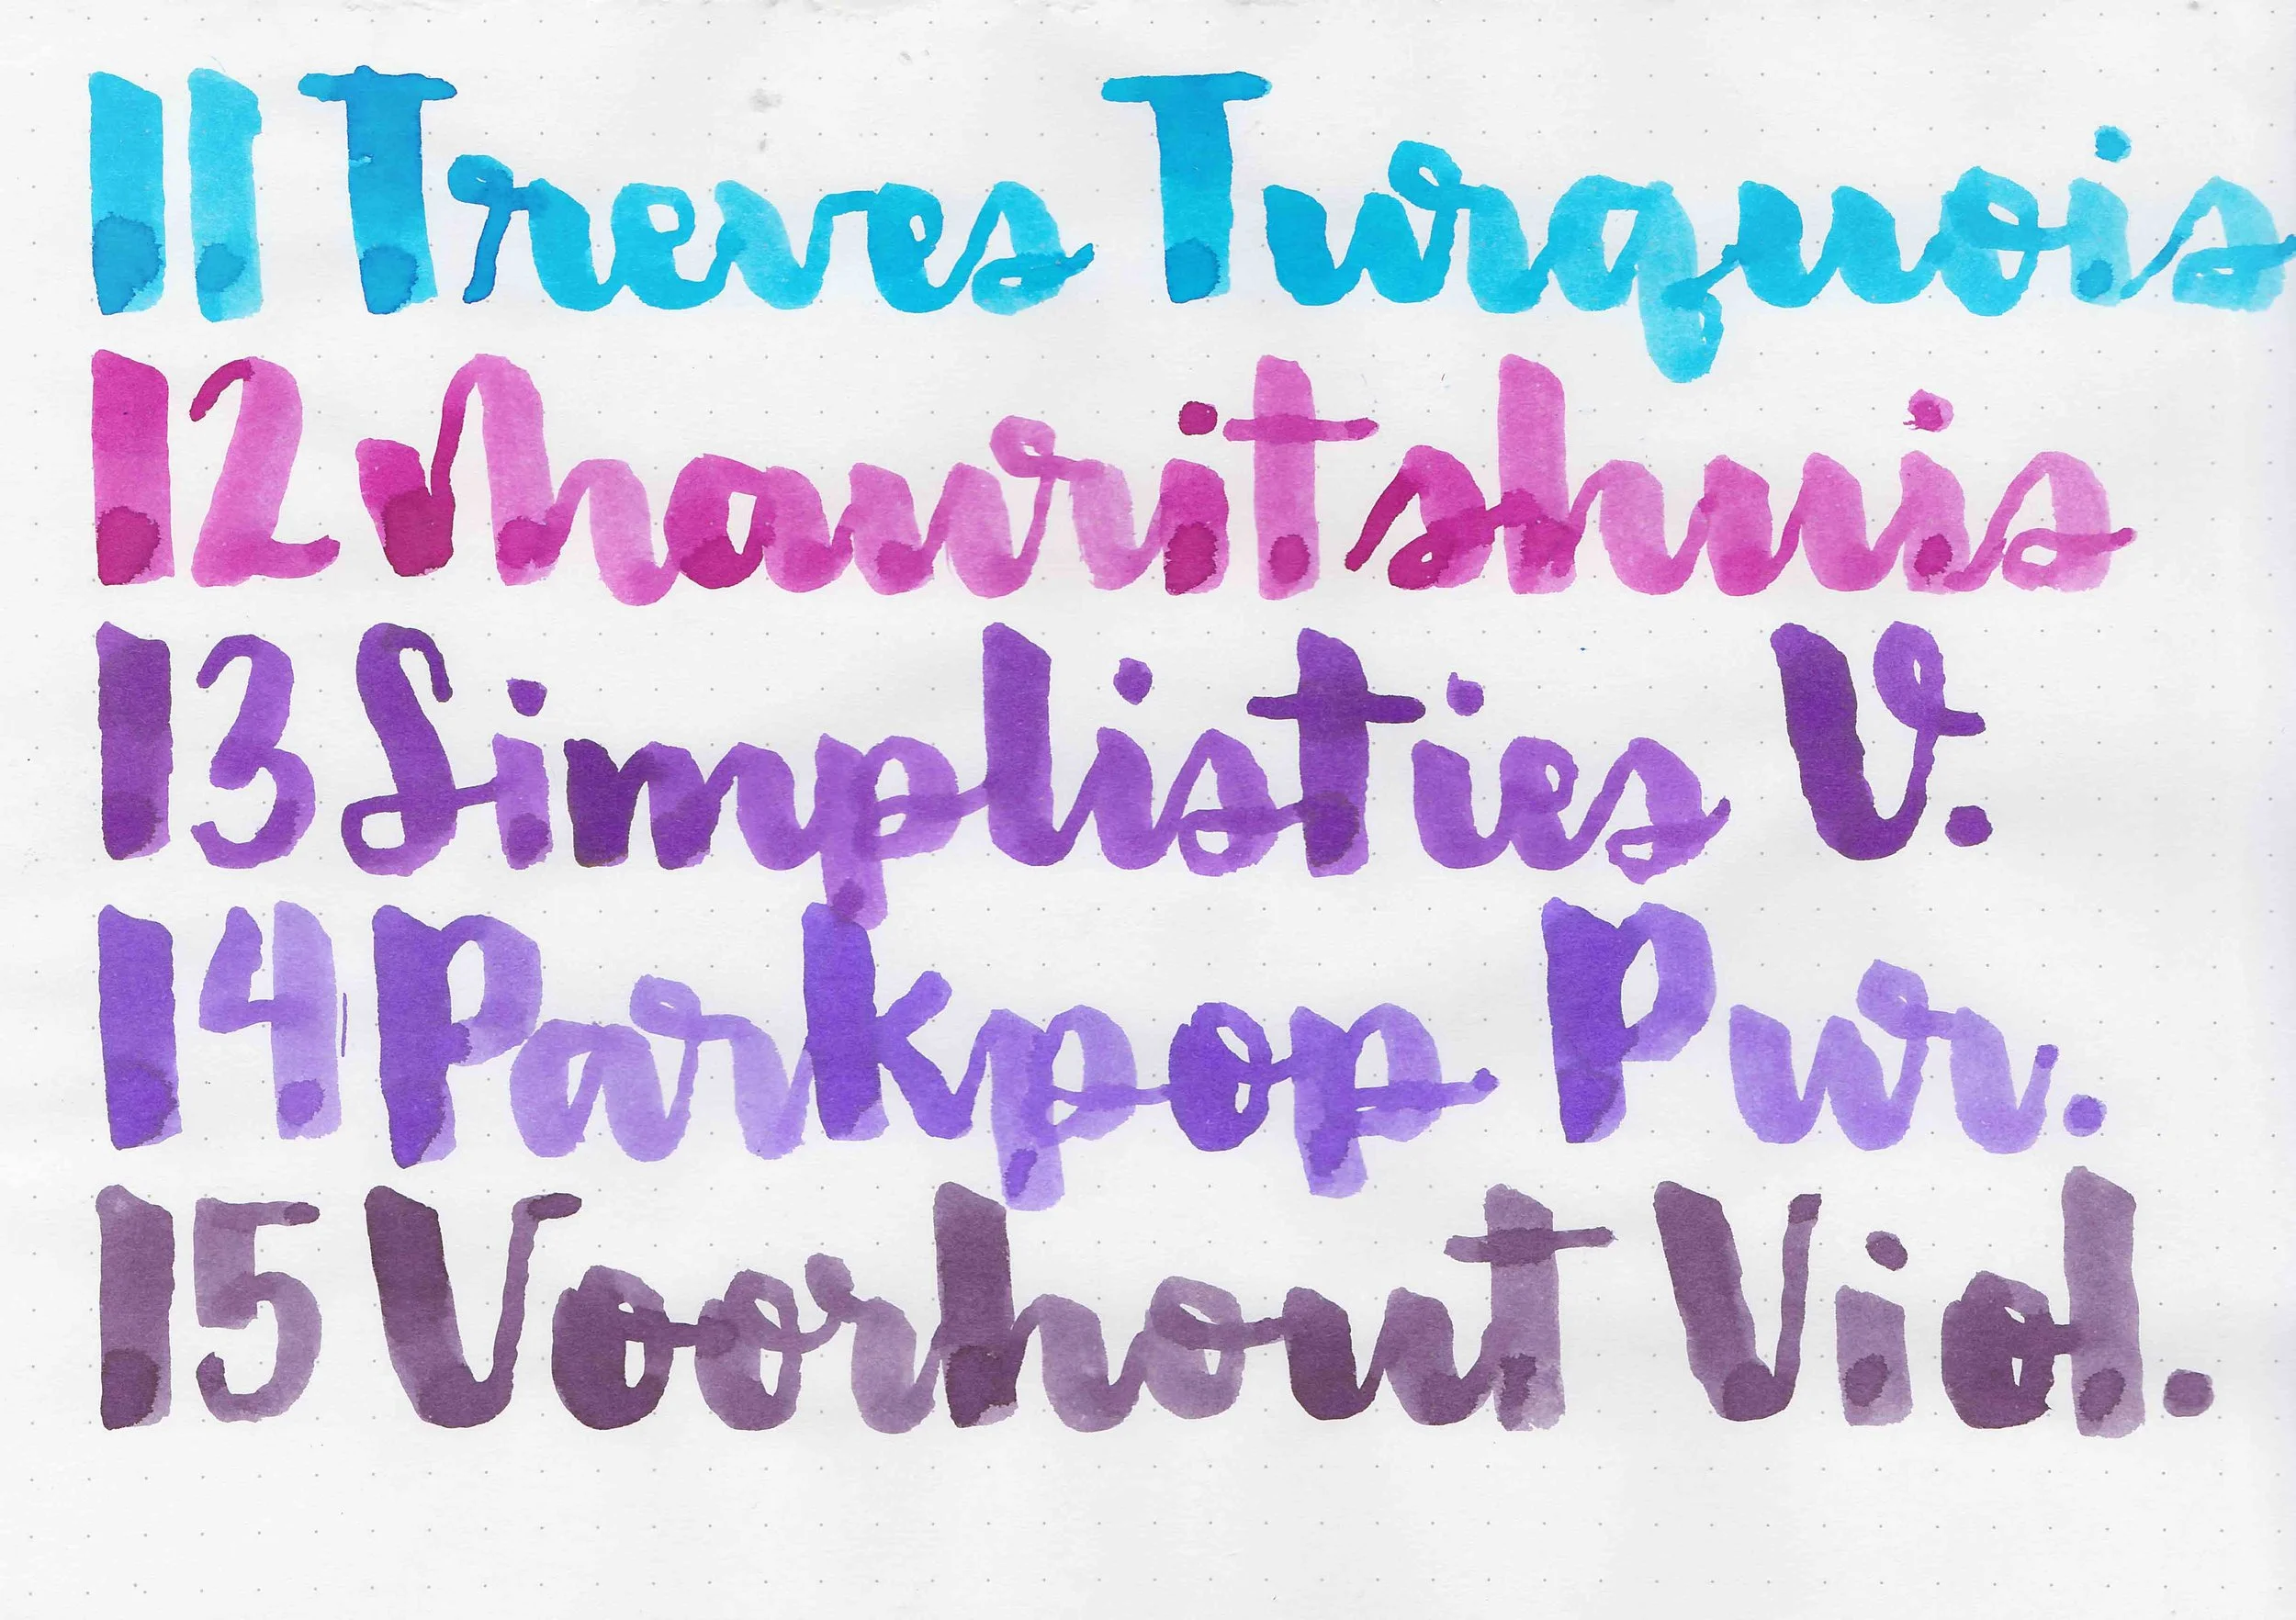 11 Treves Turquois
12 Mauritshuis
13 Simplisties V.
14 Parkpop Pur.
15 Voorhout Viol.